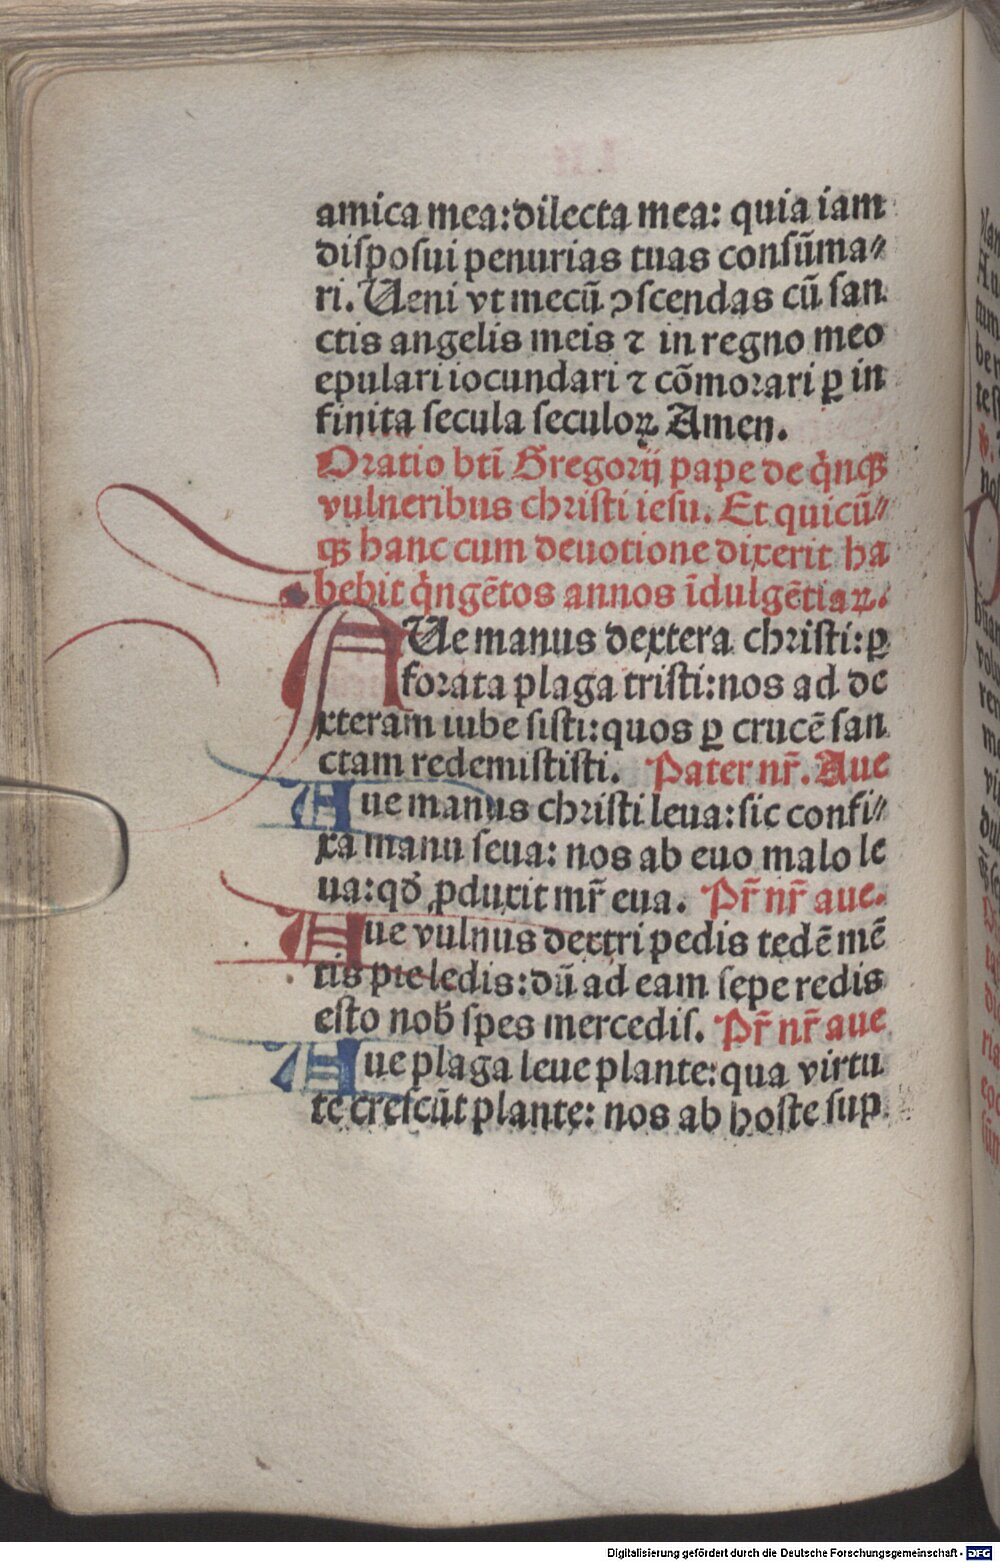 amica mea: dilecta mea: quia iam
diſpoſui penurias tuas conſūma⸗
ri. Ueni vt mecū ↄſcendas cū ſan
ctis angelis meis ⁊ in regno meo
epulari iocundari ⁊ cōmoꝛari ꝑ in
finita ſecula ſeculoꝝ Amen.
Oratio bti̅ Gregorij pape de q̇nqꝫ
vulneribus chꝛiſti ieſu. Et quicū⸗
qꝫ hanc cum deuotione dixerit ha
bebit q̇ngētos annos īdulgētiaꝝ.
AUe manus dextera chꝛiſti: ꝑ
foꝛata plaga triſti: nos ad de
xteram iube ſiſti: quos ꝑ crucē ſan
ctam redemiſtiſti. Pater nr̄. Aue
Aue manus chꝛiſti leua: ſic confi⸗
xa manu ſeua: nos ab euo malo le
ua: qđ ꝓduxit mr̄ eua. Pr̄ nr̄ aue.
Aue vulnus dextri pedis tedē mē
tis pie ledis: dū ad eam ſepe redis
eſto nob̄ ſpes mercedis. Pr̄ nr̄ aue
Aue plaga leue plante: qua virtu
te creſcūt plante: nos ab hoſte ſup
Digitalisierung gefördert durch die Deutsche Forschungsgemeinschaft - DFG